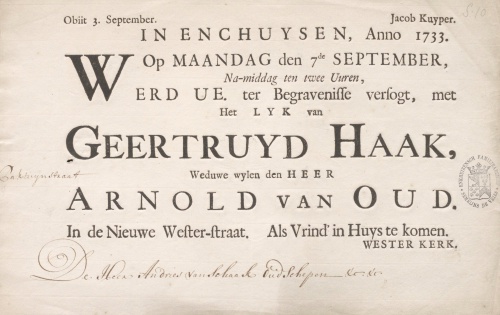 Obiit 3. September. Jacob Kuyper.
IN ENCHUYSEN, Anno 1733.
Op MAANDAG den 7de SEPTEMBER,
Na-middag ten twee Uuren,
WERD UE. ter Begravenisse versogt, met
Het LYK van
GEERTRUYD HAAK,
Weduwe wylen den HEER
ARNOLD VAN OUD.
In de Nieuwe Wester-straat. Als Vrind' in Huys te komen.
WESTER KERK.
De Heer Andries van Schaak Oud Schepen &c &c